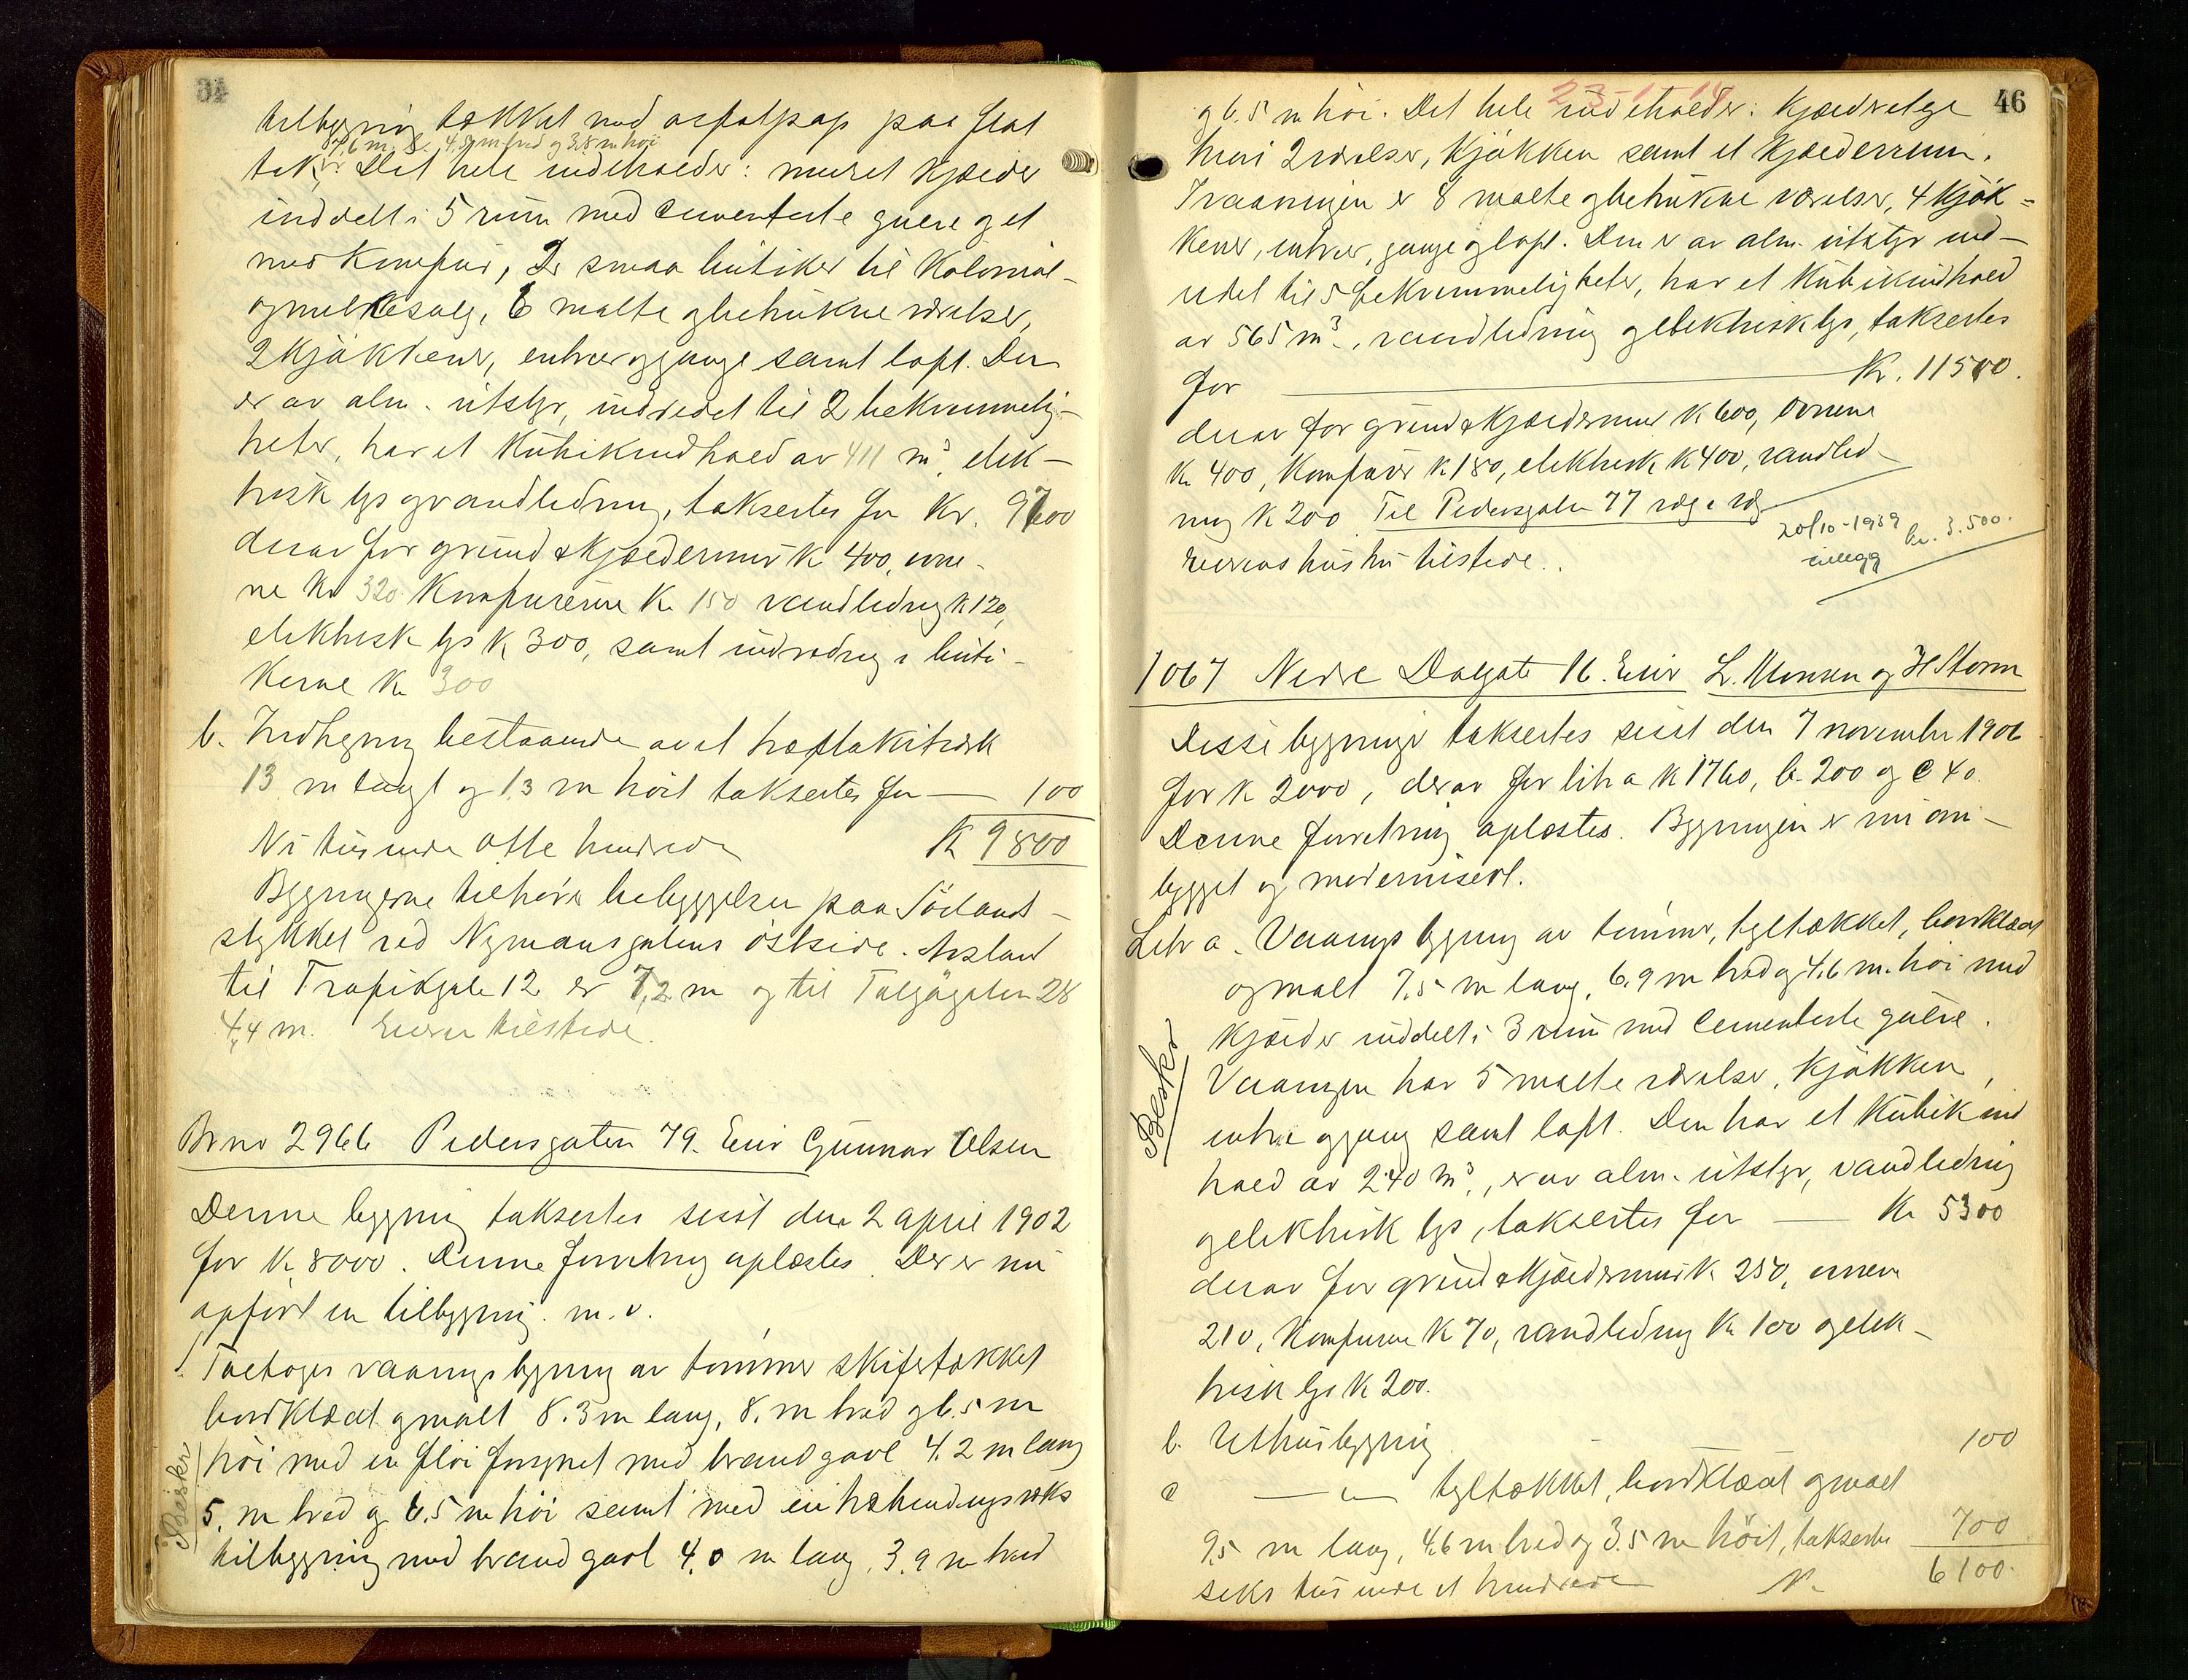 tilbygning tækket med asfaltpap paa flat
7,6 m. l. 4,9 m bred og 3,8 m høi
tak. Det hele indeholder: muret kjælder
inddelt i 5 rum med cementerte gulve og et
med komfur, 2 smaa butiker til kolonial-
og melkesalg, 6 malte og betrukne værelser,
2 kjøkkener, entreer og gange samt loft. Den
er av alm. utstyr, indredet til 2 bekvemmelig-
heter, har et kubikindhold av 411 m³, elek-
trisk lys og vandledning, takseres for Kr. 9700
derav for grund & kjældermur K 400, ovne-
ne Kr 320 Komfurerne K 150 vandledning K 120,
elektrisk lys K 300, samt indredning i buti-
kerne Kr 300
b. Indhegning bestaaende av et træstakitværk
13 m langt og 1,3 m høit takseres for — 100
Ni tusinde otte hundrede K 9800
Bygningerne tilhører bebyggelsen paa Sørlands-
stykket ved Nymansgatens østside. Avstand
til Trafikgate 12 er 7,2 m og til Taljegaten 28
4,4 m. Eieren tilstede.
Br no 2966 Pedersgaten 79. Eier Gunnar Olsen
Denne bygning taksertes sist den 2 april 1902
for K. 8000. Denne forretning oplæstes. Der er nu
opført en tilbygning m. v.
Toetages vaaningsbygning av tømmer skifertækket
bordklædt og malt 8.3 m lang, 8. m bred og 6.5 m
høi med en fløi forsynet med brandgavl 4.2 m lang
Beskr
5. m bred og 6.5 m høi samt med en utbygnings
tilbygning med brandgavl 4,0 m lang, 3,9 m bred
46
23-1-14
og 6.5 m høi. Det hele indeholder: kjælderetage
hvori 2 værelser, kjøkken samt et kjælderrum.
I vaaningen er 8 malte og betrukne værelser, 4 kjøk-
kener, entreer, gange og loft. Den er av alm. utstyr ind-
redet til 5 bekvemmeligheter, har et kubikindhold
av 565 m³, vandledning og elektrisk lys, takseres
for Kr. 11500.
derav for grund & kjældermur K 600, ovnene
K 400, Komfurer K 180, elektrisk K 400, vandled-
ning K 200. Til Pedersgaten 77 væg i væg
Eierens hustru tilstede.
20/10-1939 kr. 3.500.
tillegg
1067 Nedre Dalgate 16. Eier L. Monsen og H Storm
Disse bygninger taksertes sist den 7 november 1906
for K 2000, derav for litr a K 1760, b. 200 og c 40.
Denne forretning oplæstes. Bygningen er nu om-
bygget og modernisert.
Litr a. Vaaningsbygning av tømmer, tegltækket, bordklædt
og malt 7.5 m lang, 6.9 m bred og 4.6 m. høi med
kjælder inddelt i 3 rum med cementerte gulve.
Vaaningen har 5 malte værelser, kjøkken,
Beskr
entre og gang samt loft. Den har et kubikind
hold av 240 m³, er av alm. utstyr, vandledning
og elektrisk lys, takseres for — Kr 5300
derav for grund & kjældermur K 250, ovnene
210, Komfurene K 70, vandledning K 100 og elek-
trisk lys K 200.
b. Uthusbygning 100
c —"— tegltækket, bordklædt og malt
9,5 m lang, 4.6 m bred og 3.5 m høit, takseres 700
seks tusinde et hundrede K. 6100.